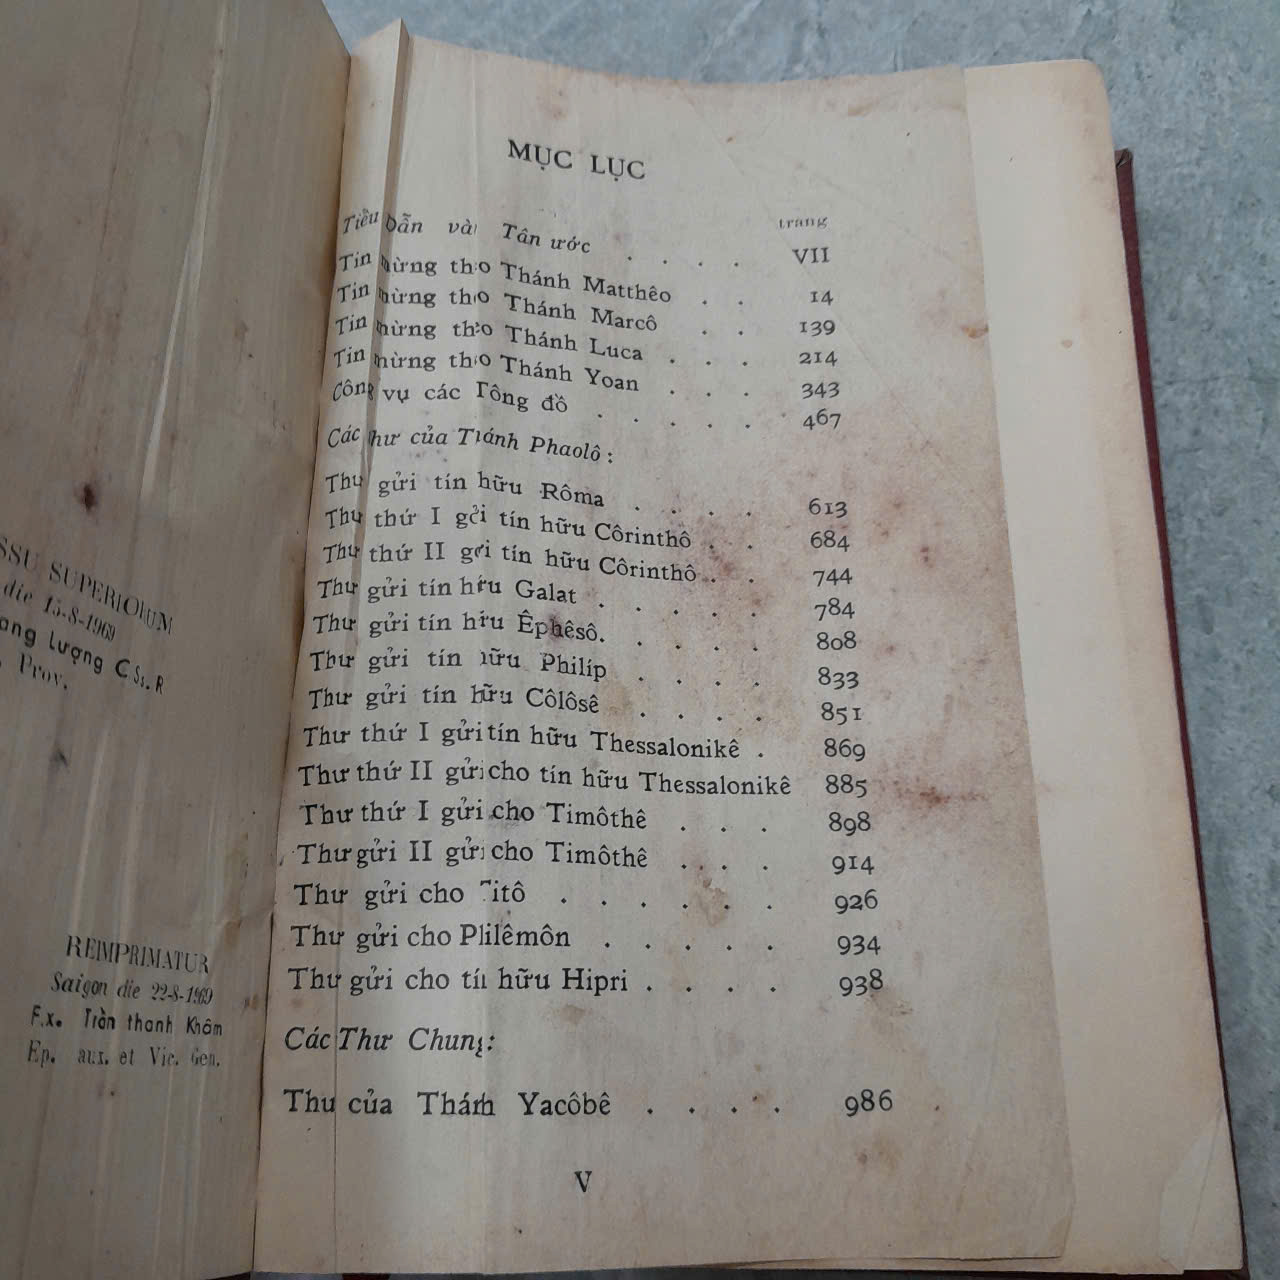 SSU SUPERIORUM
die 15-8-1969
ang Lượng C Ss. R
Prov.
REIMPRIMATUR
Saigon die 22-8-1969
F.x. Trần thanh Khâm
Ep. aux. et Vic. Gen.
MỤC LỤC
trang
Tiều Dẫn và Tân ước . . . . VII
Tin mừng theo Thánh Matthêo . . 14
Tin mừng theo Thánh Marcô . . 139
Tin mừng theo Thánh Luca . . . 214
Tin mừng theo Thánh Yoan . . . 343
Công vụ các Tông đồ . . . . . 467
Các thư của Thánh Phaolô :
Thư gửi tín hữu Rôma . . . . 613
Thư thứ I gởi tín hữu Côrinthô . . 684
Thư thứ II gởi tín hữu Côrinthô . . 744
Thư gửi tín hữu Galat . . . . . 784
Thư gửi tín hữu Êphêsô. . . . . 808
Thư gửi tín hữu Philip . . . . 833
Thư gửi tín hữu Côlôsê . . . . 851
Thư thứ I gửi tín hữu Thessalonikê . 869
Thư thứ II gửi cho tín hữu Thessalonikê 885
Thư thứ I gửi cho Timôthê . . . 898
Thư gửi II gửi cho Timôthê . . . . 914
Thư gửi cho Titô . . . . . . 926
Thư gửi cho Philêmôn . . . . . 934
Thư gửi cho tín hữu Hipri . . . . 938
Các Thư Chung:
Thu của Thánh Yacôbê . . . . 986
V